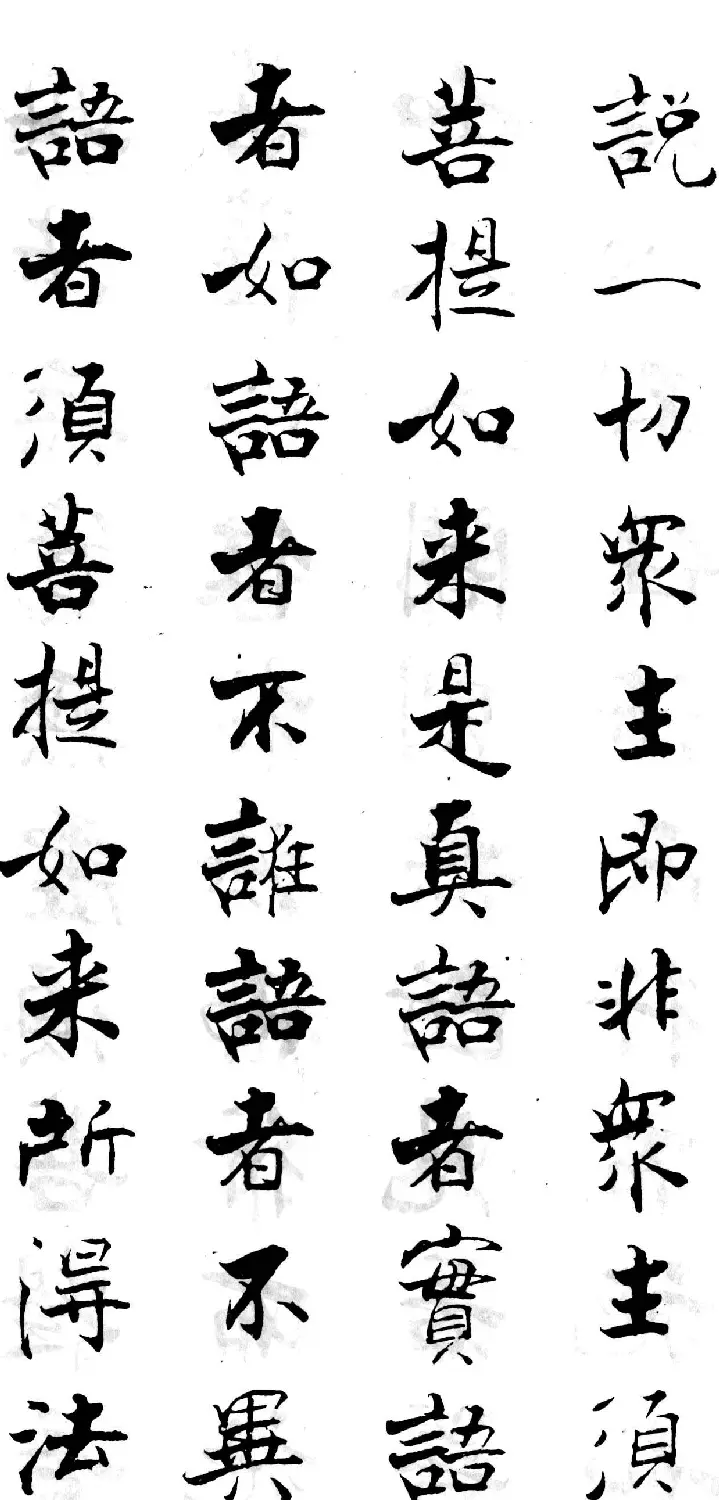 說一切眾生即非眾生須
菩提如来是真語者實語
者如語者不誰語者不異
語者須菩提如来所得法